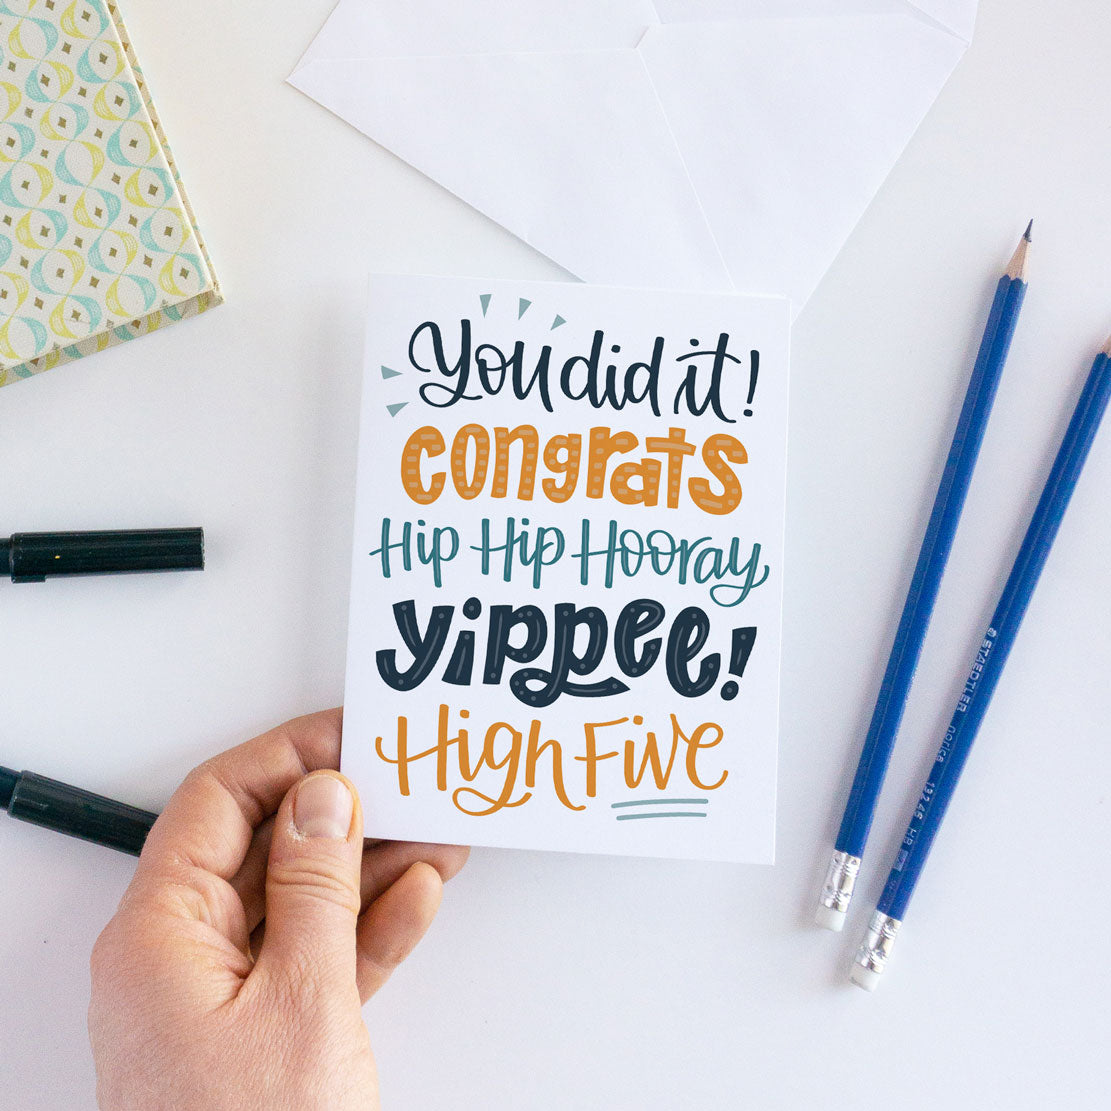 You did it!
congrats
Hip Hip Hooray
yippee!
High Five
STAEDTLER norica 13246 HB